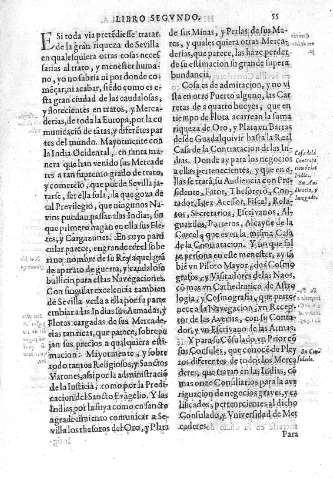 LIBRO SEGVNDO. 55
E Si toda via pretēdiesse tratar
de la gran riqueza de Sevilla
en qualesquiera otras cosas neces-
sarias al trato, y menester huma-
no, yo no sabria ni por donde co-
mēçar, ni acabar, siēdo como es es-
ta gran ciudad de las caudalosas,
y florecientes en tratos, y Merca-
derias, de toda la Europa, por la co-
municaciō de tātas, y diferētes par-
tes del mundo. Mayormente con
la India Ocidental, en tanta
manera que han venido las Merca-
à tan supremo grado de trato,
y comercio, que por de Sevilla ja-
ctarse, se ella sola, la que goza de
tal Previlegio, que ningunos Na-
vios puedan passar a las Indias, sin
que primero hagan en ella sus Fle-
tes, y Cargazones. En cuyo parti-
cular parece, engrandecersele sobre
el nombre de su Rey aquel grā-
de aparato de guerra, y caudaloso
bullicio para estas Navegaciones.
Con singular excelencia tambien
de Sevilla verla a ella por su parte
embiar a las Indias sus Armadas, y
Flotas cargadas de sus Mercade-
rias tan ricas, que parece, sobrepu-
jan sus precios a qualquiera esti-
macion: Mayormente, y sobre
todo tantos Religiosos, y Sanctos
Varones, assi por la administraciō
de la Iusticia, como por la Predi-
cacion del Sancto Evāgelio. Y las
Indias por la suya como en sancto
agradecimiento comunicar a Se-
villa los thesoros del Oro, y Plata
de sus Minas, y Perlas de sus Ma-
res, y quales quiera otras Merca-
derias, que parece, las hinche Dios
de su estimacion su grande supera
bundancia.
Cosa es de admiracion, y no vi
sta en otro Puerto alguno, las Car
retas de a quatro bueyes, que en
tiempo de Flota acarrean la suma
riqueza de Oro, y Plata en Barras
desde Guadalquivir hasta la Real
Casa de la Contratacion de las In-
dias. Donde ay para los negocios
a ellas pertenecientes, y que en e-
llas se tratā, su Audiencia con Pre
sidente, Fator, Thesorero, Con-
tador, Iuez Assesor, Fiscal, Rela-
tores, Secretarios, Escrivanos, Al-
guaziles, Porteros, Alcayde de la
Carcel, que esta en la misma Casa
de la Contratacion. Y sin que fal-
te persona en este menester, ay tā-
biē vn Piloto Mayor, dos Cosmo-
graphos, y Visitadores de las Naos,
cō mas vn Cathedratico de Astro-
logia, y Cosmographia, que parte-
nece a la Navegacion, y vn Recep-
tor de las Averias, con su Conta-
dor, y vn Escrivano de las Armas.
Y para su Cōsulado, vn Prior cō
sus Consules, que conocē de Pley-
tos diferentes de todos los Merca-
deres, que tratan en las Indias, cō
mas onze Consiliarios para la ave
riguacion de negocios graves, y ca
lificados, pertenecientes al dicho
Consulado, y Vniversidad de Mer
caderes.
Para
Casa de la
Contrata